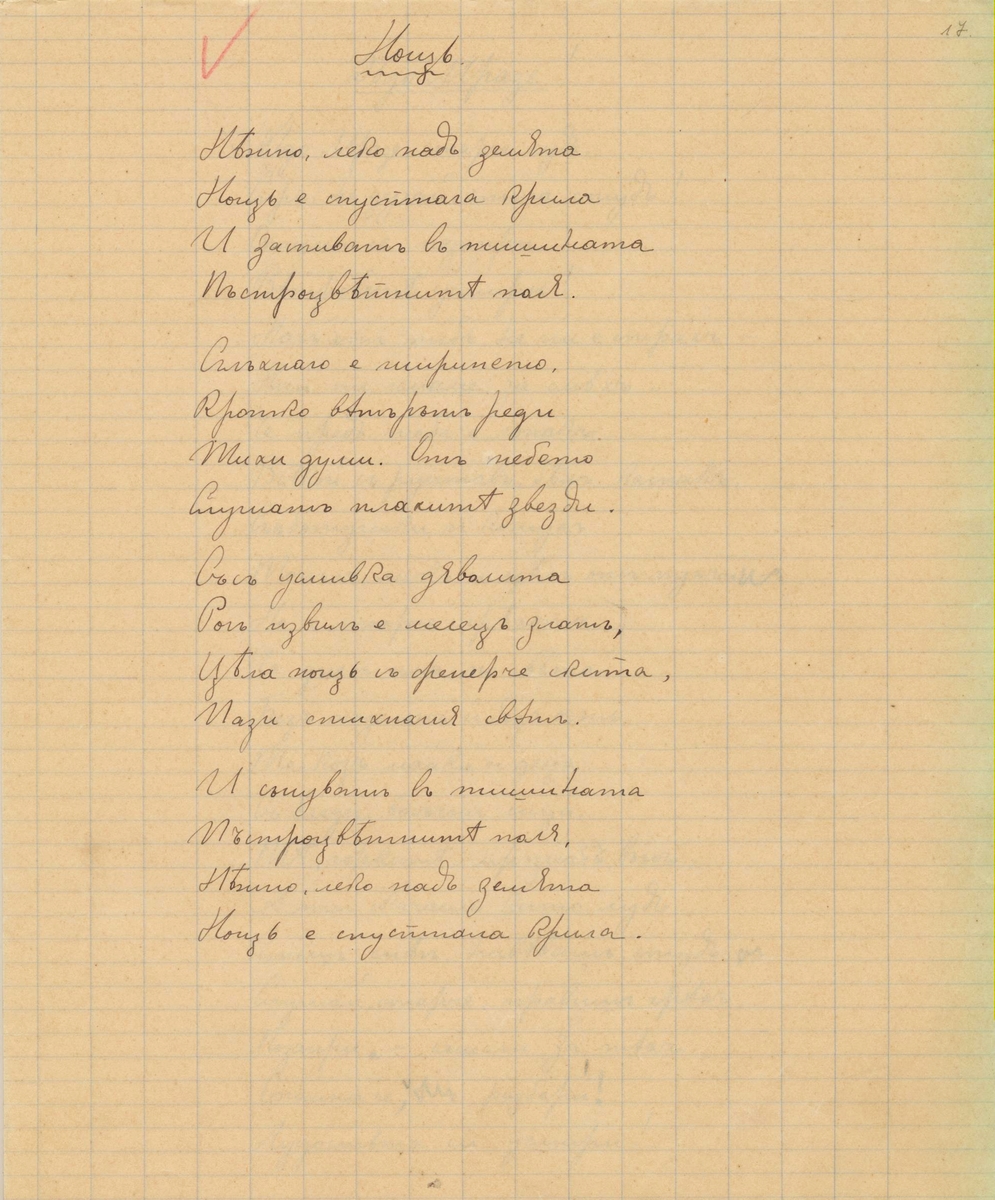 17.
Нощь.
Нѣжно, леко надъ земята
Нощь е спустнала крила
И заспиватъ въ тишината
Пъстроцвѣтнитѣ поля.
Слъхнало е ширинето,
Кротко вѣтърътъ реди
Тихи думи. Отъ небето
Слушатъ плахитѣ звезди.
Съсъ усмивка дяволита
Рогъ извилъ е месецъ златъ,
Цѣла нощь съ фенерче скита,
Пази стихналия свѣтъ.
И сънуватъ въ тишината
Пъстроцвѣтнитѣ поля,
Нѣжно, леко надъ земята
Нощь е спустнала крила.